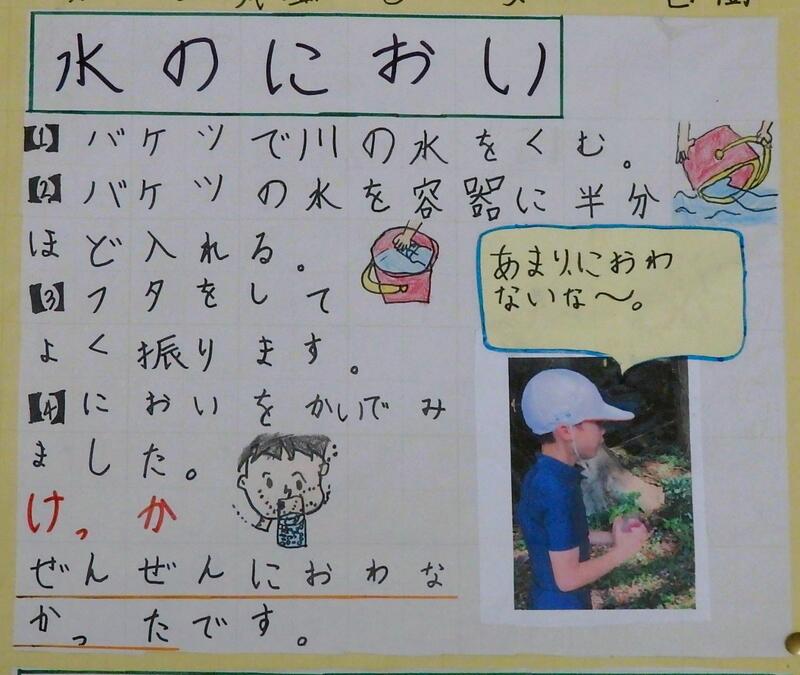 水のにおい
【1】バケツで川の水をくむ。
【2】バケツの水を容器に半分
ほど入れる。
【3】フタをして
よく振ります。
【4】においをかいでみ
ました。
けっか
ぜんぜんにおわな
かったです。
あまりにおわ
ないな〜。